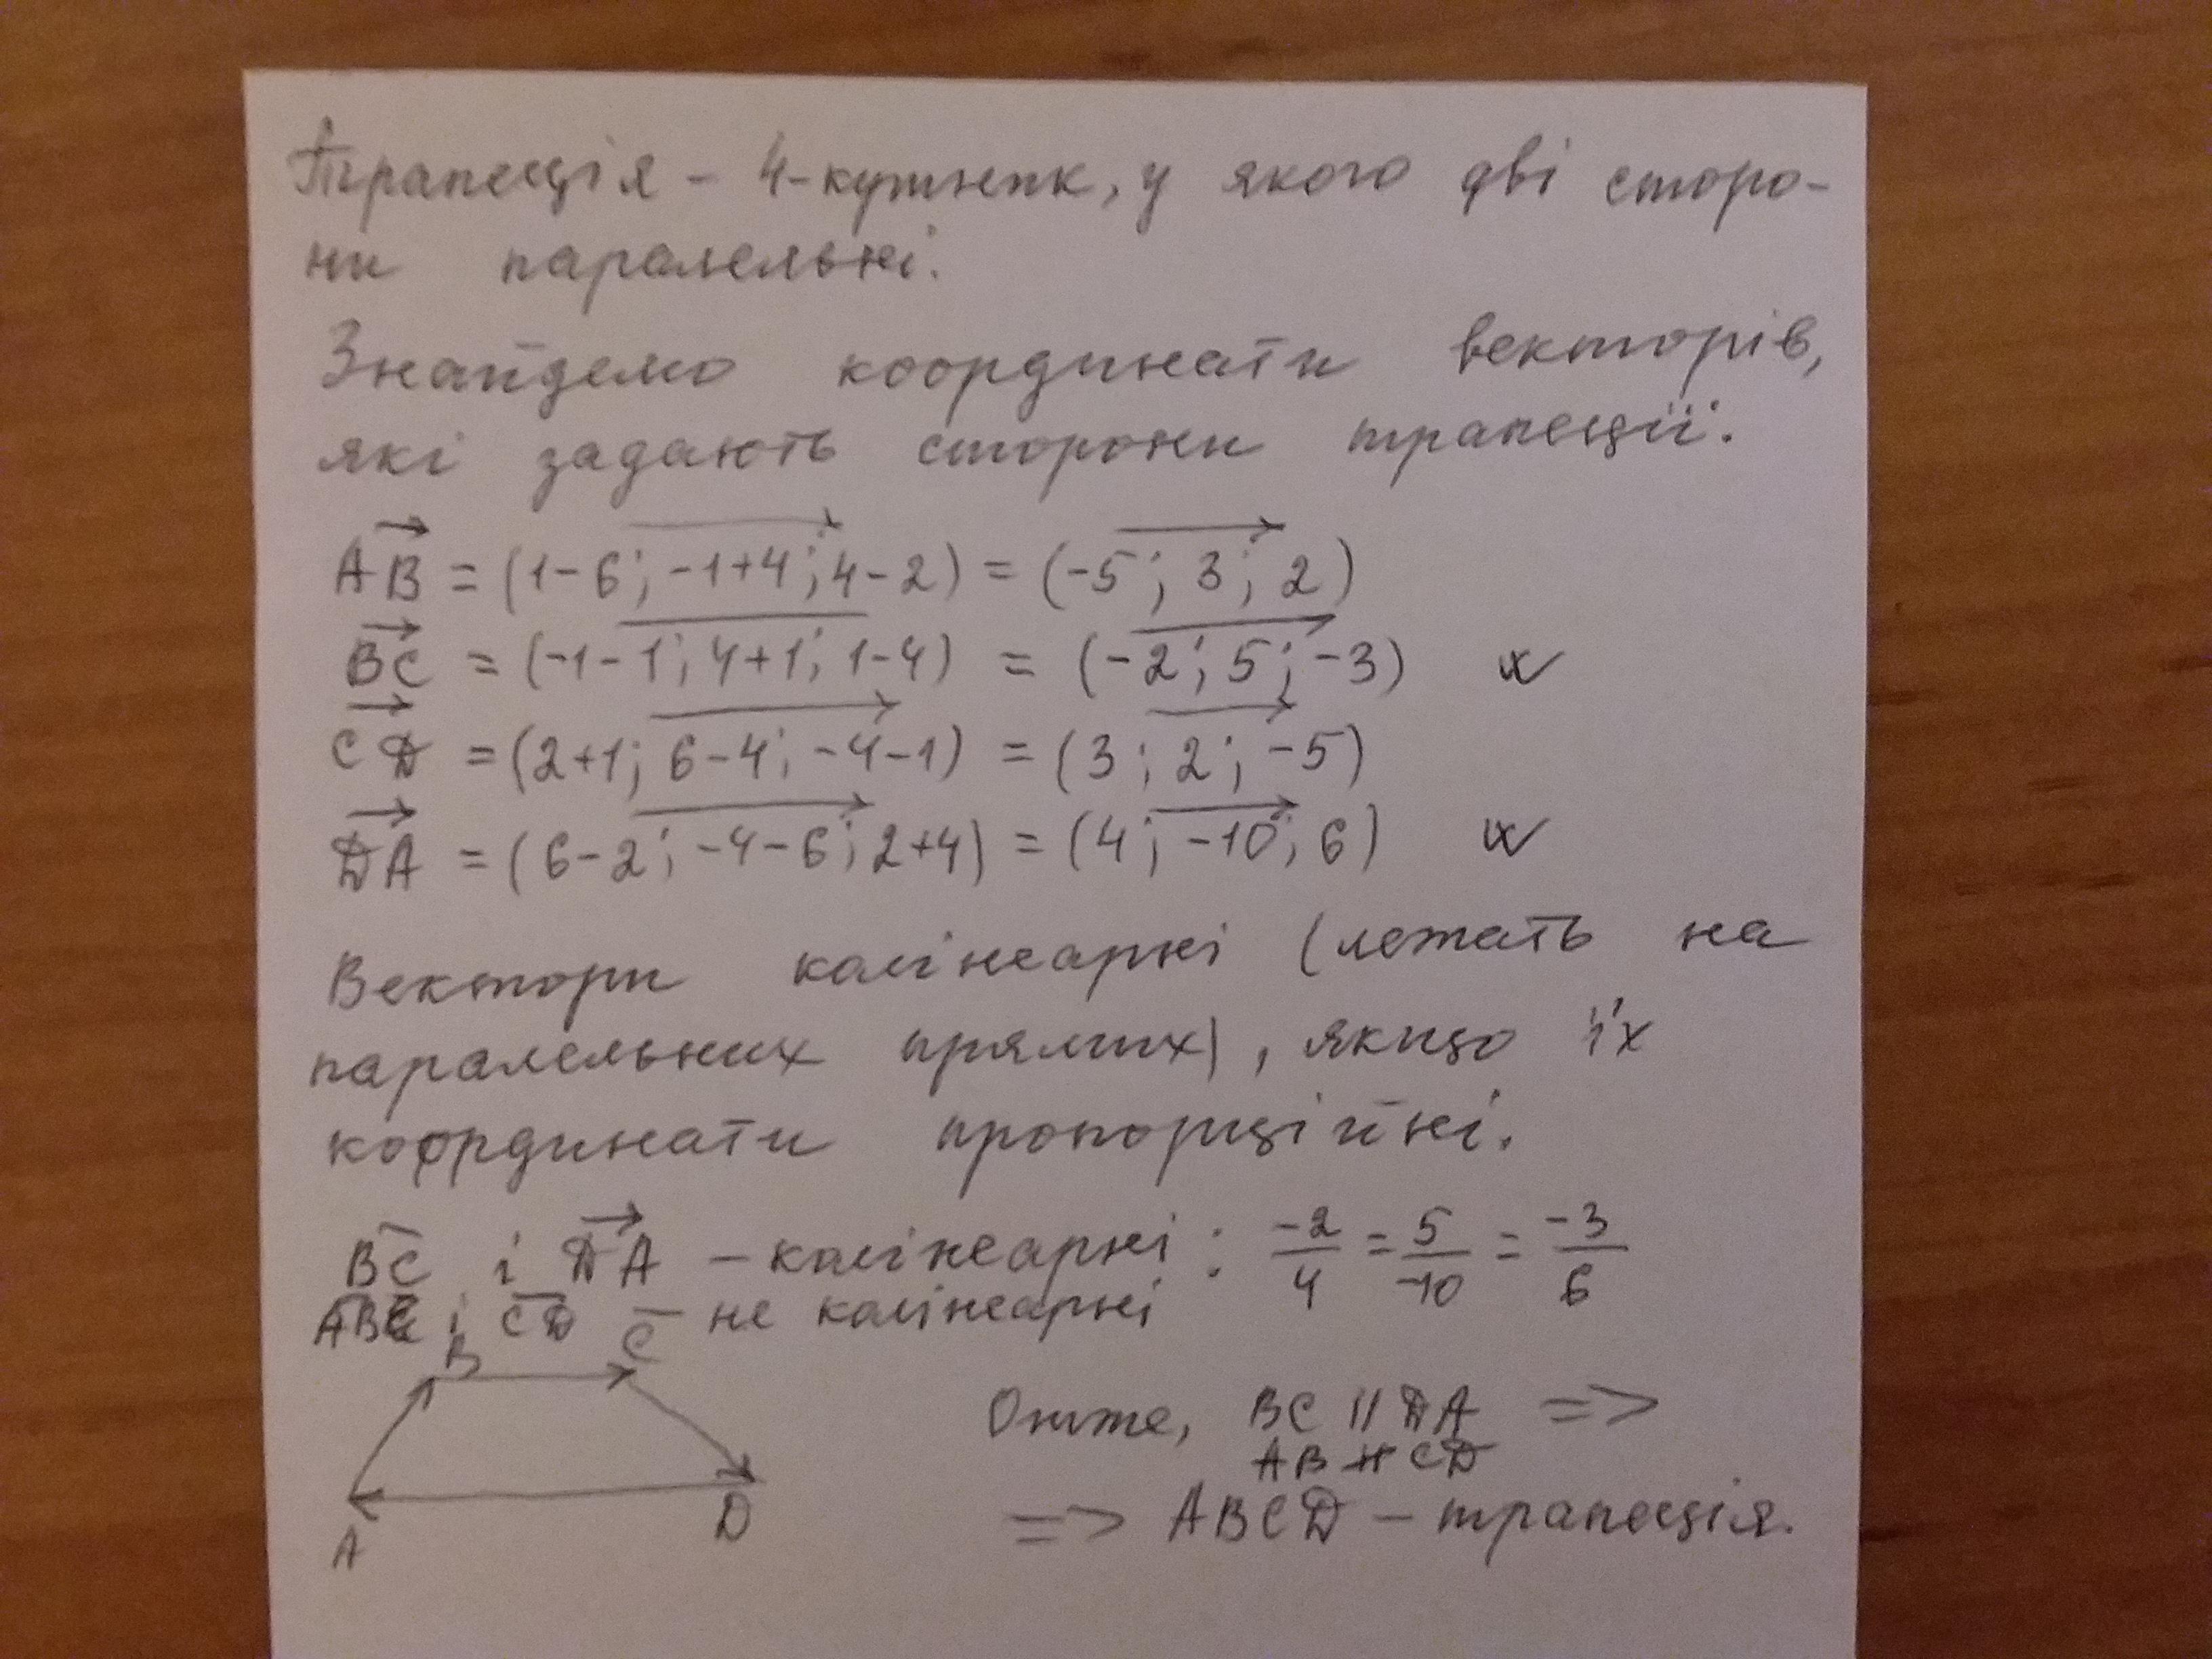 Трапеція - 4-кутник, у якого дві сторо-
ни паралельні.
Знайдемо координати векторів,
які задають сторони трапеції.
AB = (1-6; -1+4; 4-2) = (-5; 3; 2)
BC = (-1-1; 4+1; 1-4) = (-2; 5; -3)
CD = (2+1; 6-4; -4-1) = (3; 2; -5)
DA = (6-2; -4-6; 2+4) = (4; -10; 6)
Вектори колінеарні (лежать на
паралельних прямих), якщо їх
координати пропорційні.
BC і DA - колінеарні: -2/4 = 5/-10 = -3/6
AB і CD - не колінеарні
B C
Отже, BC || DA =>
AB ∦ CD
A D
=> ABCD - трапеція.